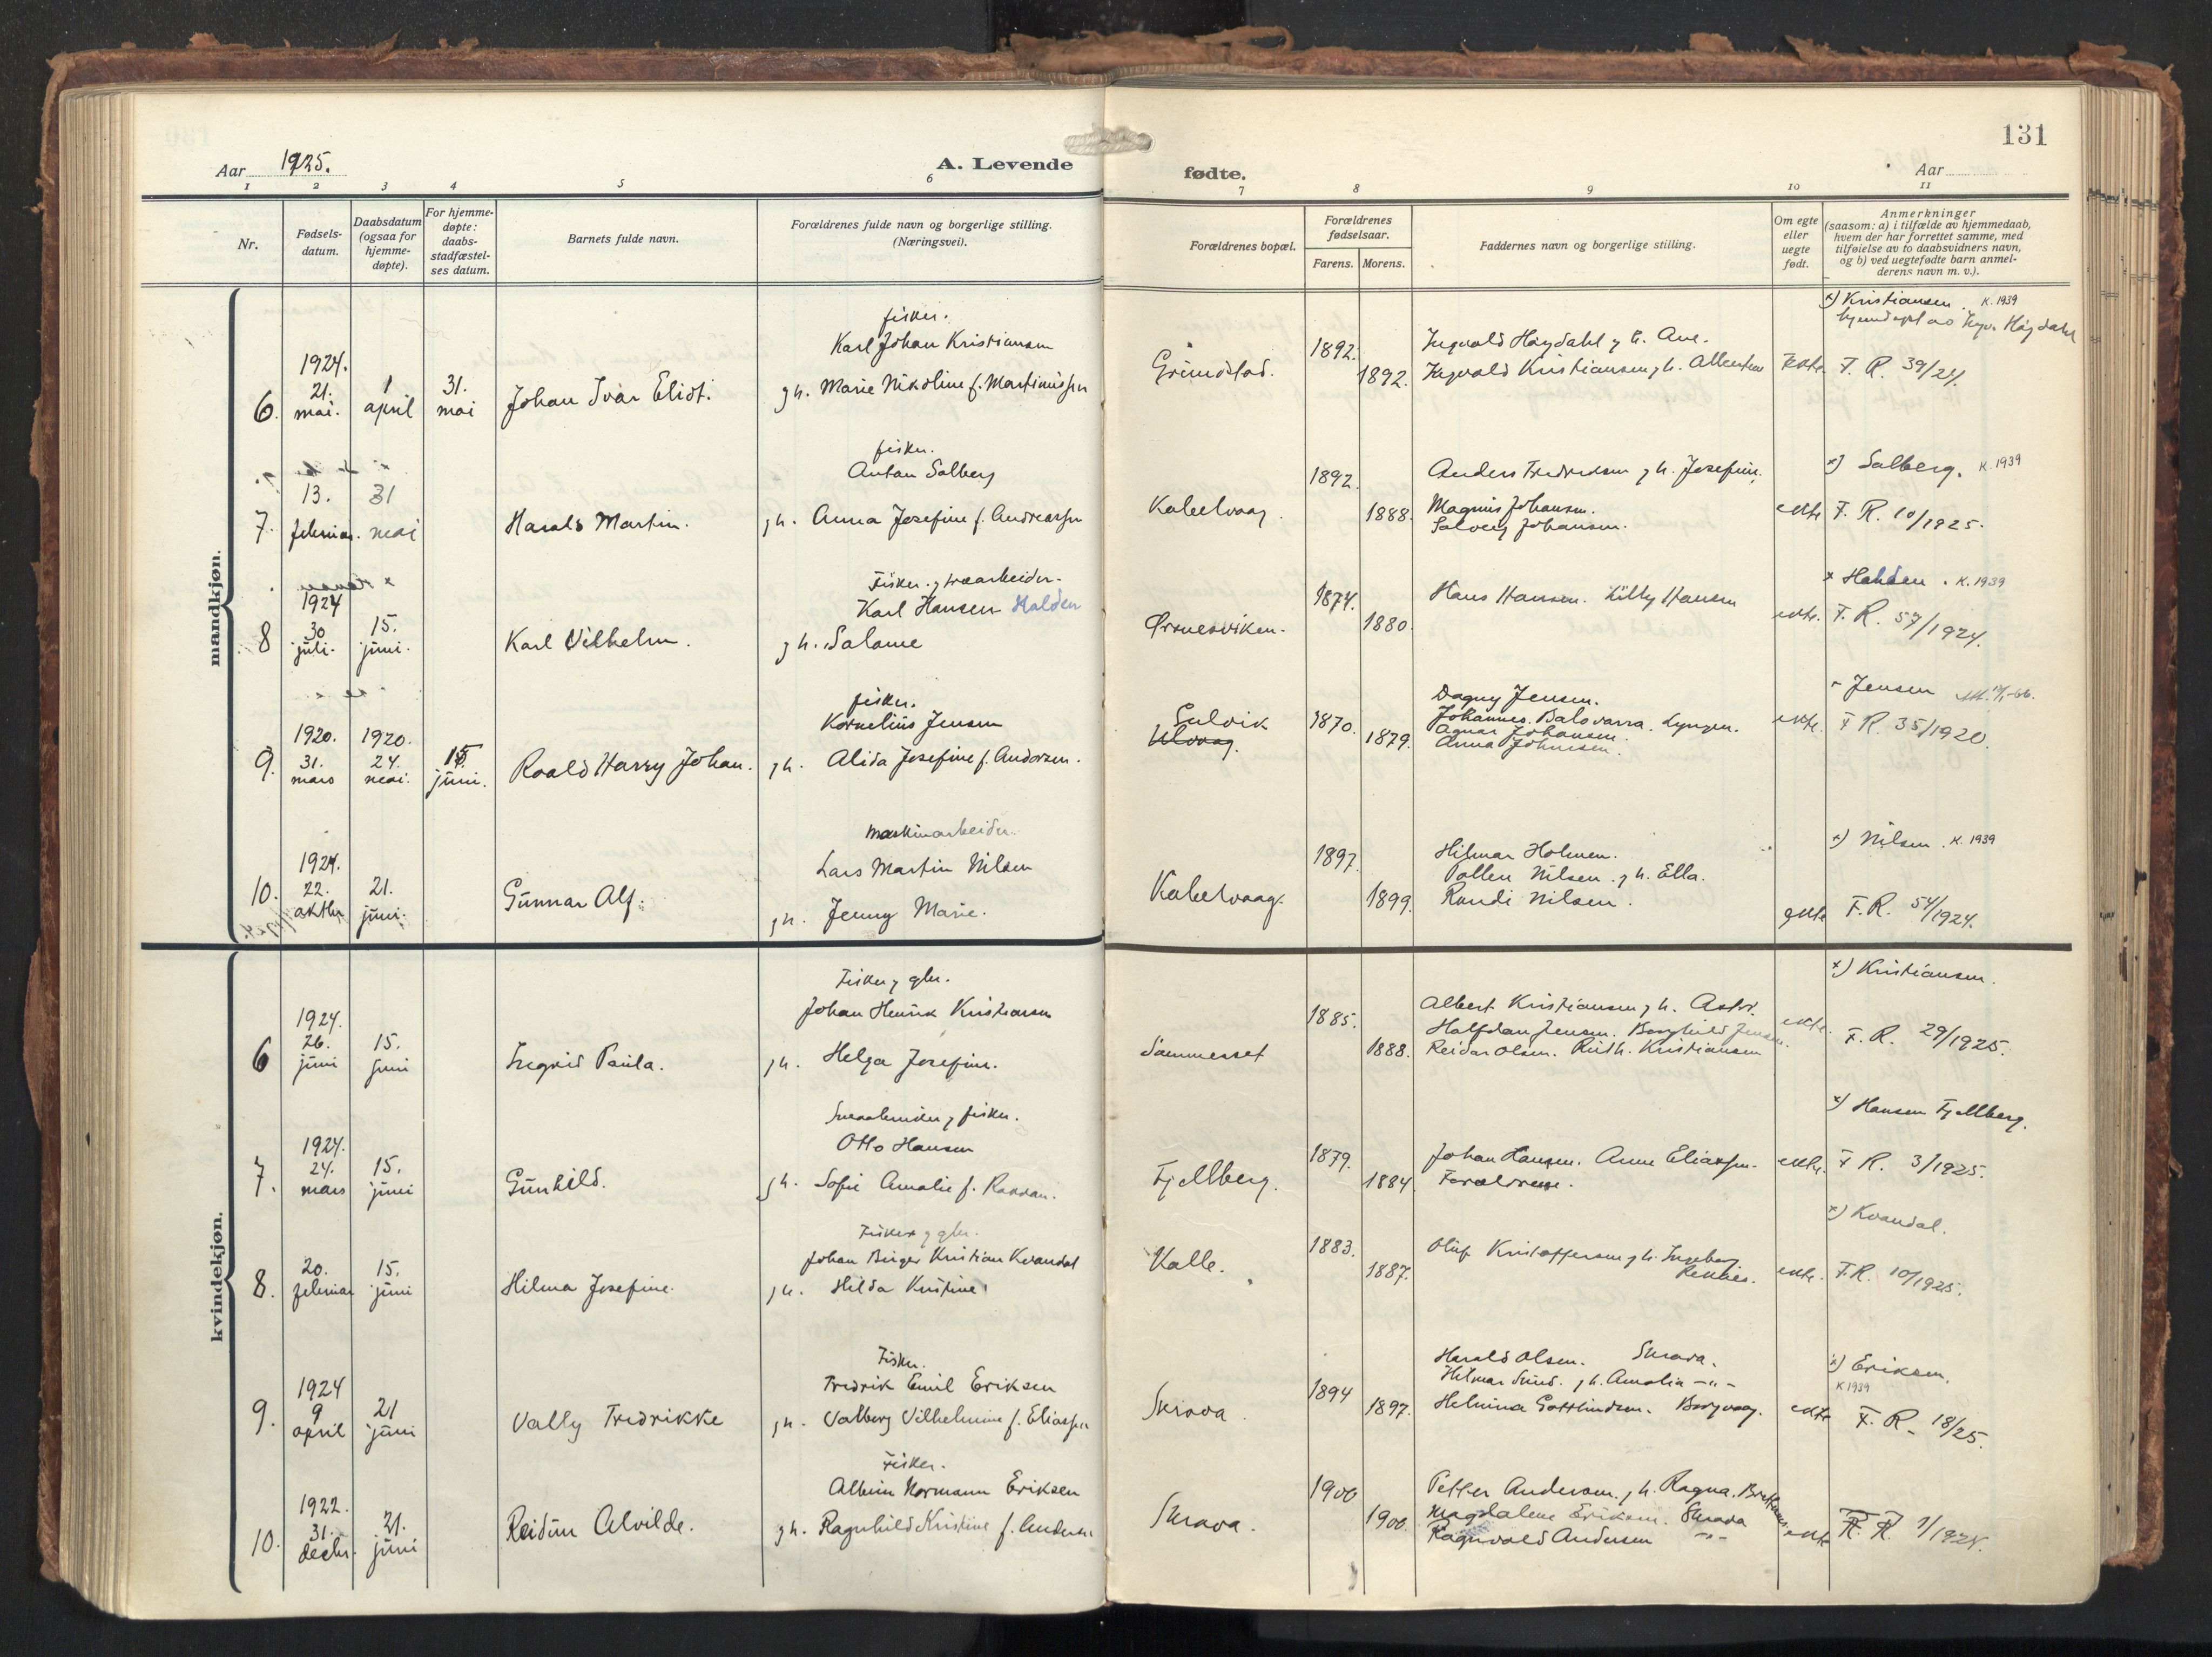 131
Aar 1925.
A. Levende
fødte.
Aar
1 2 3 4 5 6 7 8 9 10 11
Nr.
Fødsels-
datum.
Daabsdatum
(ogsaa for
hjemme-
døpte).
For hjemme-
døpte:
daabs-
stadfæstel-
ses datum.
Barnets fulde navn.
Forældrenes fulde navn og borgerlige stilling.
(Næringsvei).
Forældrenes bopæl.
Forældrenes
fødselsaar.
Farens. Morens.
Faddernes navn og borgerlige stilling.
Om egte
eller
uegte
født.
Anmerkninger
(saasom: a) i tilfælde av hjemmedaab,
hvem der har forrettet samme, med
tilføielse av to daabsvidners navn,
og b) ved uegtefødte barn anmel-
derens navn m. v.).
mandkjøn.
6.
1924.
21.
mai.
1
april
31.
mai
Johan Ivar Eliot.
fisker.
Karl Johan Kristiansen
g h. Marie Nikoline f. Martinussen
Grundstad.
1892.
1892.
Ingvald Høydahl g h. Ane.
Ingvald Kristiansen g h.
x) Kristiansen. K. 1939
hjemdøpt av Ingv. Høydahl
F. R. 39/24.
7.
13.
februar.
31
mai
Harald Martin.
fisker.
Anton Solberg
g h. Anna Josefine f. Andreassen
Kabelvaag.
1892.
1888.
Anders Fredriksen g h. Josefine.
Magnus Johansen.
Solveig Johansen.
ekte
x) Solberg. K. 1939
F. R. 10/1925.
8
1924
30
juli.
15.
juni.
Karl Vilhelm.
Fisker. g træarbeider.
Karl Hansen Halden
g h. Salome
Ørsnesviken.
1874.
1880.
Hans Hansen. Lilly Hansen
ekte.
x Halden. K. 1939
F. R. 57/1924.
9.
1920.
31.
mars
1920.
24.
mai.
15.
juni.
Roald Harry Johan.
fisker.
Kornelius Jensen
g h. Alida Josefine f. Andersen.
Sulvik
Ulvaag.
1870.
1879.
Dagny Jensen.
Johannes Balsvarra. Lyngen.
Agnar Johansen.
Anna Johnsen.
ekte.
Jensen
F R. 35/1920.
10.
1924.
22.
oktbr
21.
juni.
Gunnar Alf.
maskinarbeider.
Lars Martin Nilsen
g h. Jenny Marie.
Kabelvaag.
1897.
1899.
Hilmar Holmen.
Nilsen. g h. Ella.
Randi Nilsen.
ekte
x) Nilsen. K. 1939
F. R. 54/1924.
kvindekjøn.
6
1924.
26.
juni
15.
juni
Ingrid Paula.
Fisker g gbr.
Johan Henrik Kristiansen
g h. Helga Josefine.
Sommerset
1885.
1888.
Albert Kristiansen g h. Astr.
Halfdan Jensen. Borghild Jensen.
Reidar Olsen. Ruth. Kristiansen
ekte.
x) Kristiansen.
F. R. 29/1925.
7.
1924.
24.
mars
15.
juni
Gunhild.
g fisker.
Otto Hansen
g h. Sofie Amalie f.
Fjellberg.
1879.
1884.
Johan Hansen. Anne Eliassen.
Forældrene.
ekte.
x) Hansen Fjellberg.
F R. 3/1925.
8.
20.
februar
15.
juni
Hilma Josefine.
Fisker g gbr.
Johan Birger Kristian Kvandal
g h. Hilda Kristine
Kalle.
1883.
1887.
Oluf Kristoffersen g h. Ingeborg
Reknes.
ekte.
x) Kvandal.
F. R. 10/1925.
9.
1924
9
april
21
juni
Vally Fredrikke
Fisker.
Fredrik Emil Eriksen
g h. Valborg Vilhelmine f. Eliassen
Skrova.
1894
1897.
Harald Olsen. Skrova.
Hilmar Sund. g h. Amalia -"-
Helmina Gotthindsen.
ekte
x) Eriksen.
K 1939
F. R. 18/25.
10.
1922.
31.
decbr.
21.
juni
Reidun Alvilde.
Fisker.
Albin Normann Eriksen
g h. Ragnhild Kristine f. Andersen
Skrova.
1900
1900.
Petter Andersen. g h. Ragna.
Magdalene Eriksen. Skrova
Ragnvald Andersen -"-
ekte
F. R.